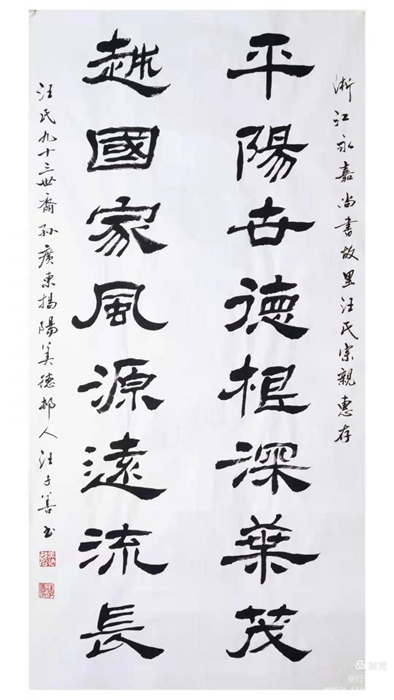 浙江永嘉尚书故里汪氏宗親惠存
平陽世德根深葉茂
越國家風源遠流長
汪氏九十三世裔孙廣東揭陽美德都人汪子善书